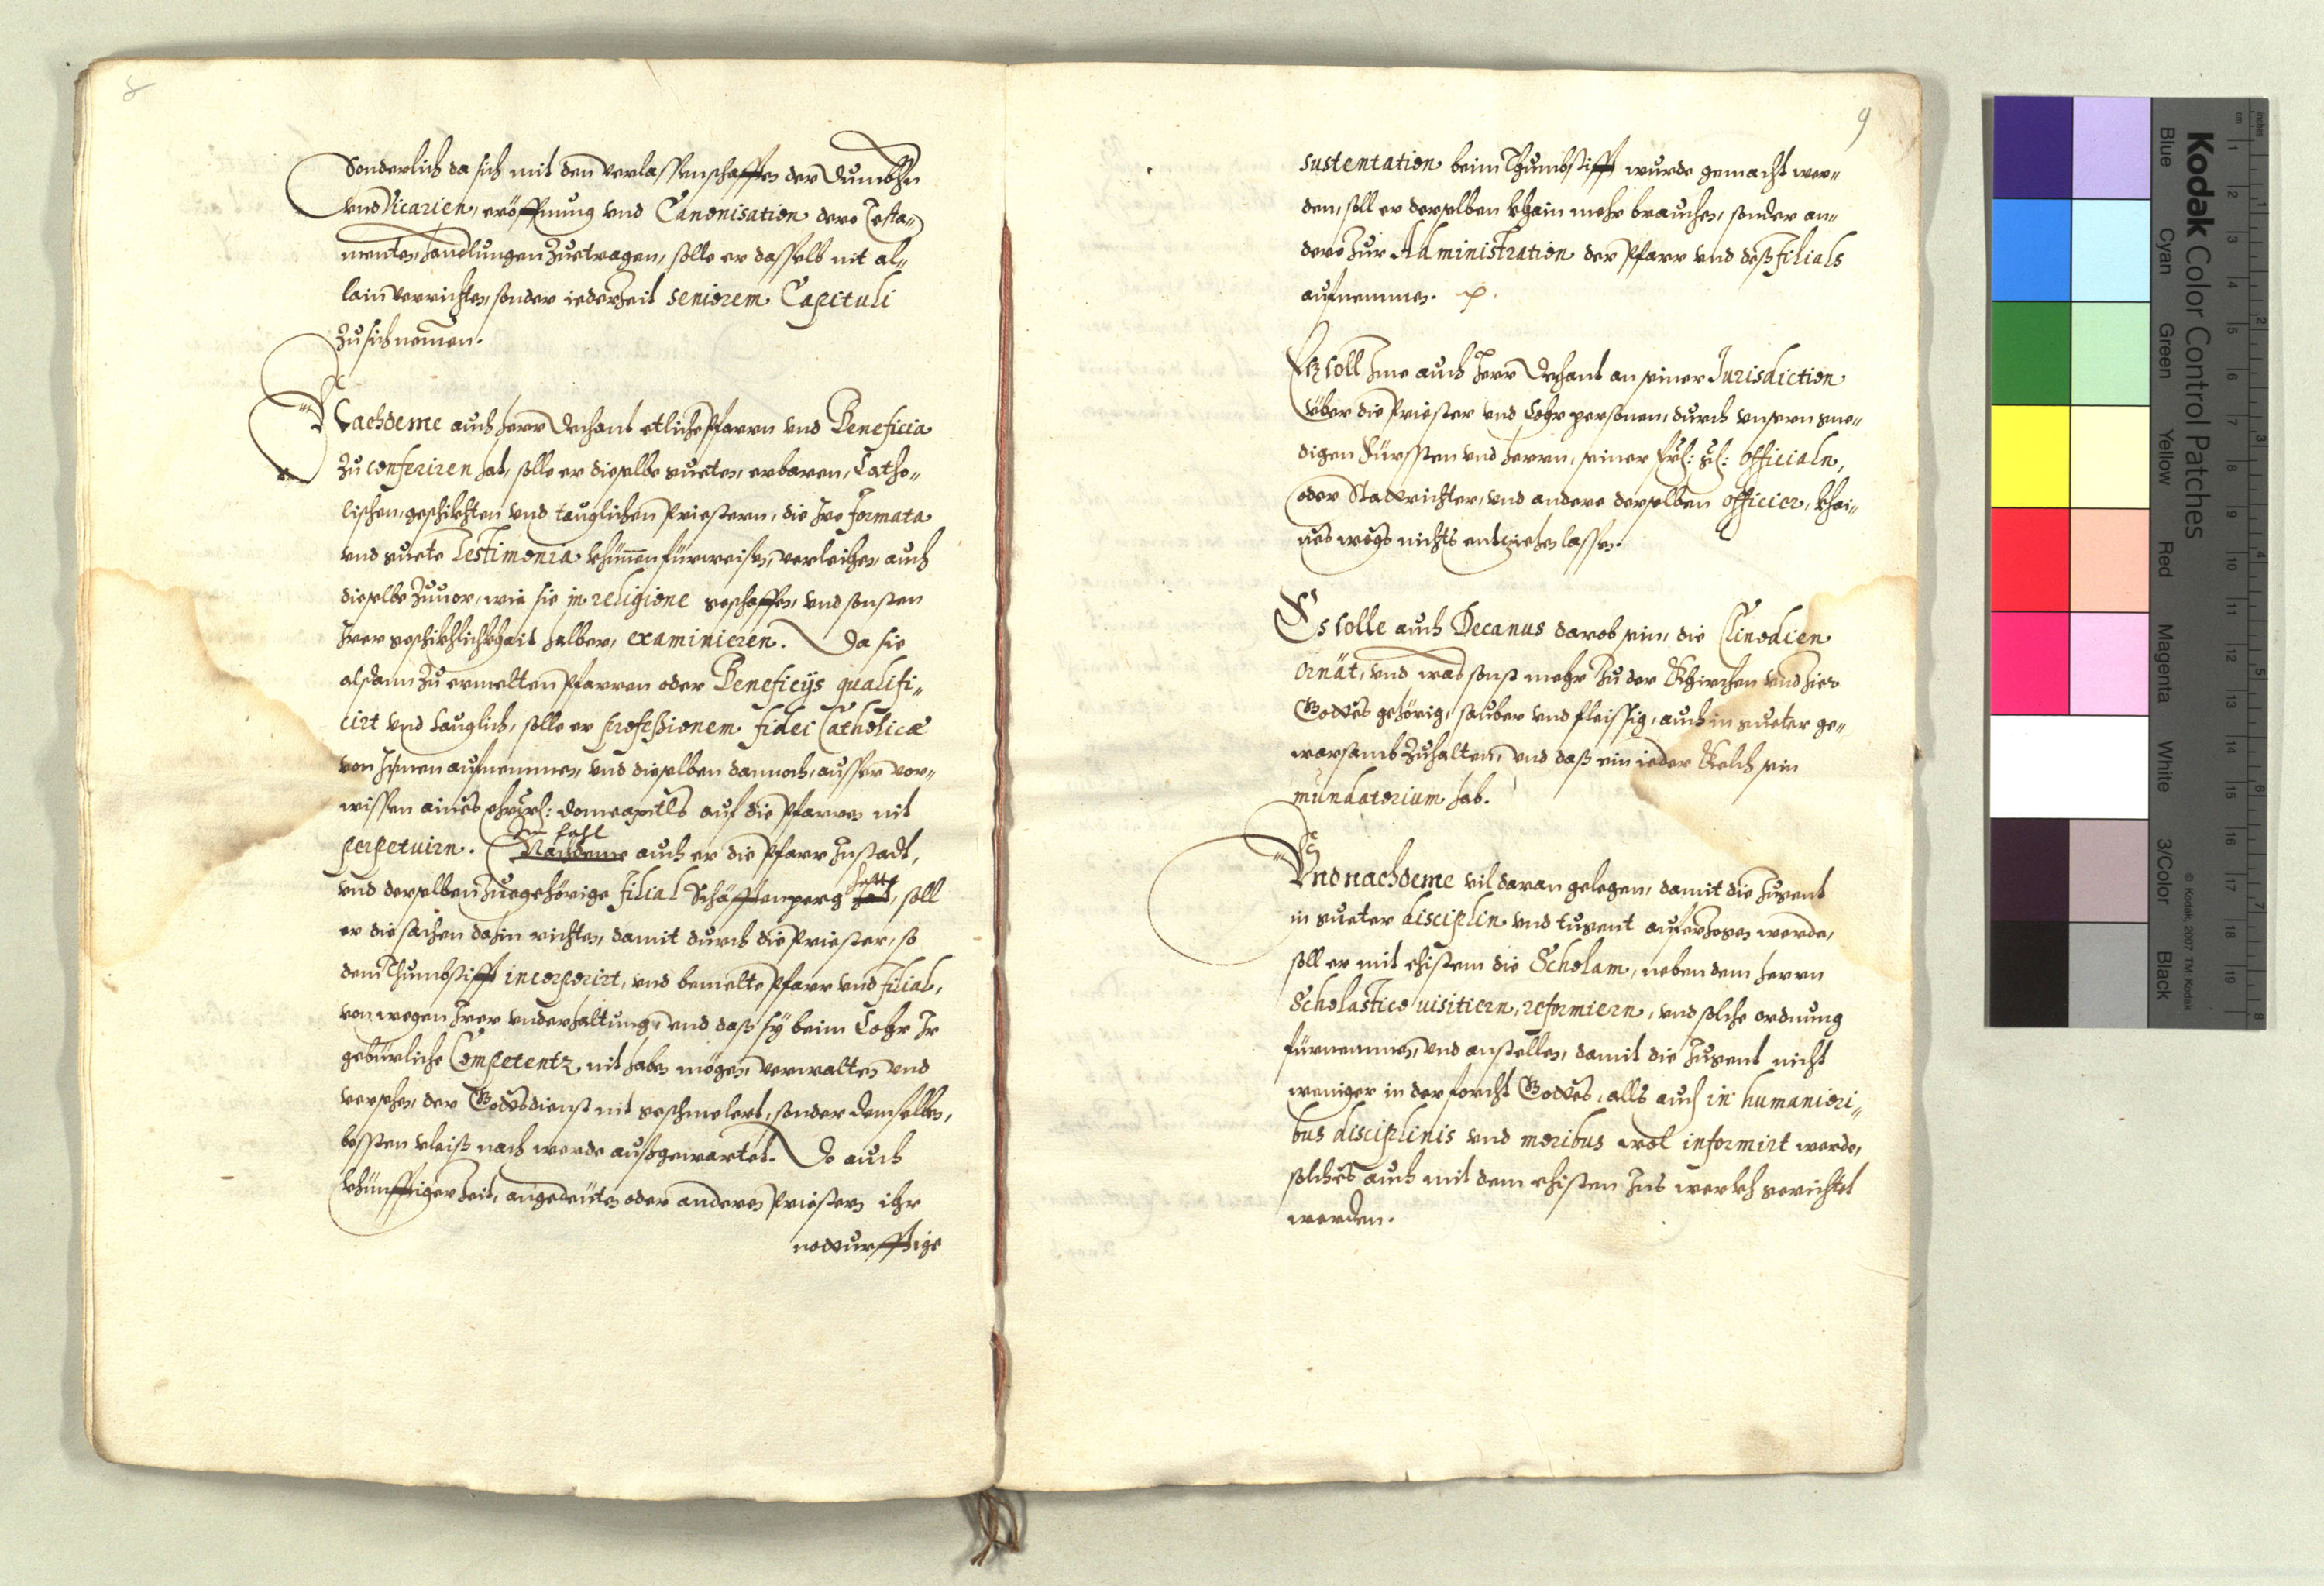 8
Sonderlich da sich mit den verlassenschafften der Dumbhn
vnd Vicarien, eröffnung vnd Canonisation dero Testa„
menten, handlungen zuetragen, solle er dasselb nit al„
lain verrichten, sonder iederzeit seniorem Capituli
zu sich nemen.
Nachdeme auch herr Dechant etliche Pfarrn vnd Beneficia
zu conferiren hat, solle er dieselbe gueten, erbaren, Catho„
lischen, geschikhten vnd tauglichen Priestern, die Ire formata
vnd guete Testimonia khünnen fürweisen, verleihen, auch
dieselbe zuuor, wie sie in religione geschaffen, vnd sonsten
Irer geschikhlichkhait halber, examinieren. Da sie
alsdann zu ermelten Pfarren oder Beneficijs qualifi„
cirt vnd tauglich, solle er professionem fidei Catholicæ
von Ihnen aufnemmen, vnd dieselben dannoch, ausser vor„
wissen aines ehrw: domcapitls auf die Pfarren nit
Im fahl
perpetuirn. Nachdeme auch er die Pfarr Instadt,
hette
vnd derselben zuegehörige filial Schäfftenperg hat, soll
er die sachen dahin richten, damit durch die Priester, so
dem Thumbstifft incorporirt, vnd bemelte Pfarr vnd filial,
von wegen Irer vnderhaltung, vnd daß sÿ beim Cohr Ir
gebürliche Competentz nit haben mögen, verwalten vnd
versehen, der Gottsdienst nit geschmelert, sonder demselben,
bessten vleiß nach werde außgewartet. Do auch
khünfftiger Zeit, angedeüten oder anderen Priestern ihr
notturfftige
9
sustentation beim Thumbstifft wurde gemacht wer„
den, soll er derselben khain mehr brauchen, sonder an„
dere zur Administration der Pfarr vnd deß filials
aufnemmen.
Er soll Ime auch Herr Dechant an seiner Jurisdiction
über die Priester vnd Cohr personen, durch vnsern gne„
digen Fürssten vnd herrn, seiner officialn,
oder Stattrichter, vnd andere derselben officier, khai„
nes wegs nichts entziehen lassen.
Es solle auch Decanus darob sein, die Clinodien
ornät, vnd was sonst mehr zu der Khirchen vnd zier
Gottes gehörig, sauber vnd fleissig, auch in gueter ge„
warsamb zuhalten, vnd daß ein ieder Kelch sein
mundatorium hab.
Vnd nachdeme vil daran gelegen, damit die Jugent
in gueter disciplin vnd tugent auferzogen werde,
soll er mit ehistem die Scholam, neben dem herrn
Scholastico uisitiern, reformiern, vnd solche ordnung
fürnemmen, vnd anstellen, damit die Jugent nicht
weniger in der forcht Gottes, alls auch in humaniori„
bus disciplinis vnd moribus wol informirt werde,
solches auch mit dem ehisten Ins werkh gerichtet
werden.
Kodak Color Control Patches
Blue Cyan Green Yellow Red Magenta White 3/Color Black
© Kodak, 2007 TM: Kodak